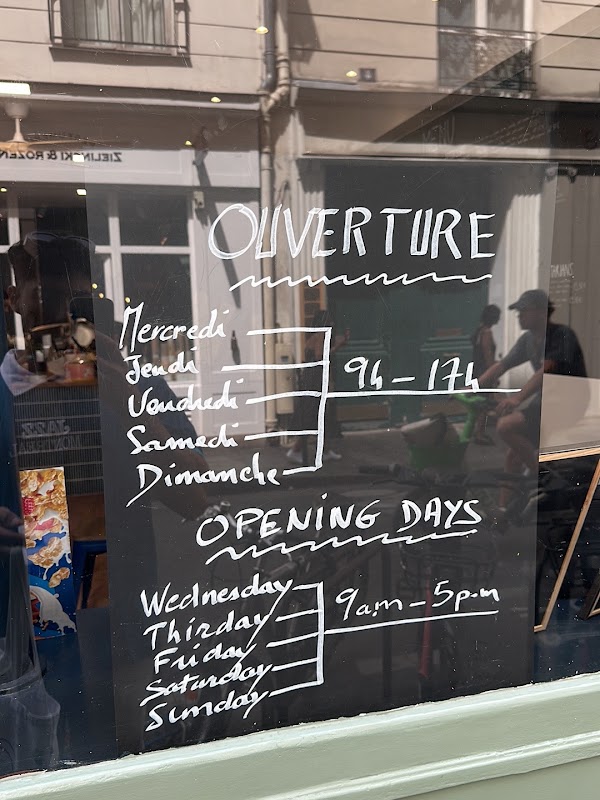 ZIELINSKI & ROZEN
MENU
OUVERTURE
Mercredi
Jeudi
Vendredi
Samedi
Dimanche
9h - 17h
OPENING DAYS
Wednesday
Thirday
Friday
Saturday
Sunday
9am - 5p.m